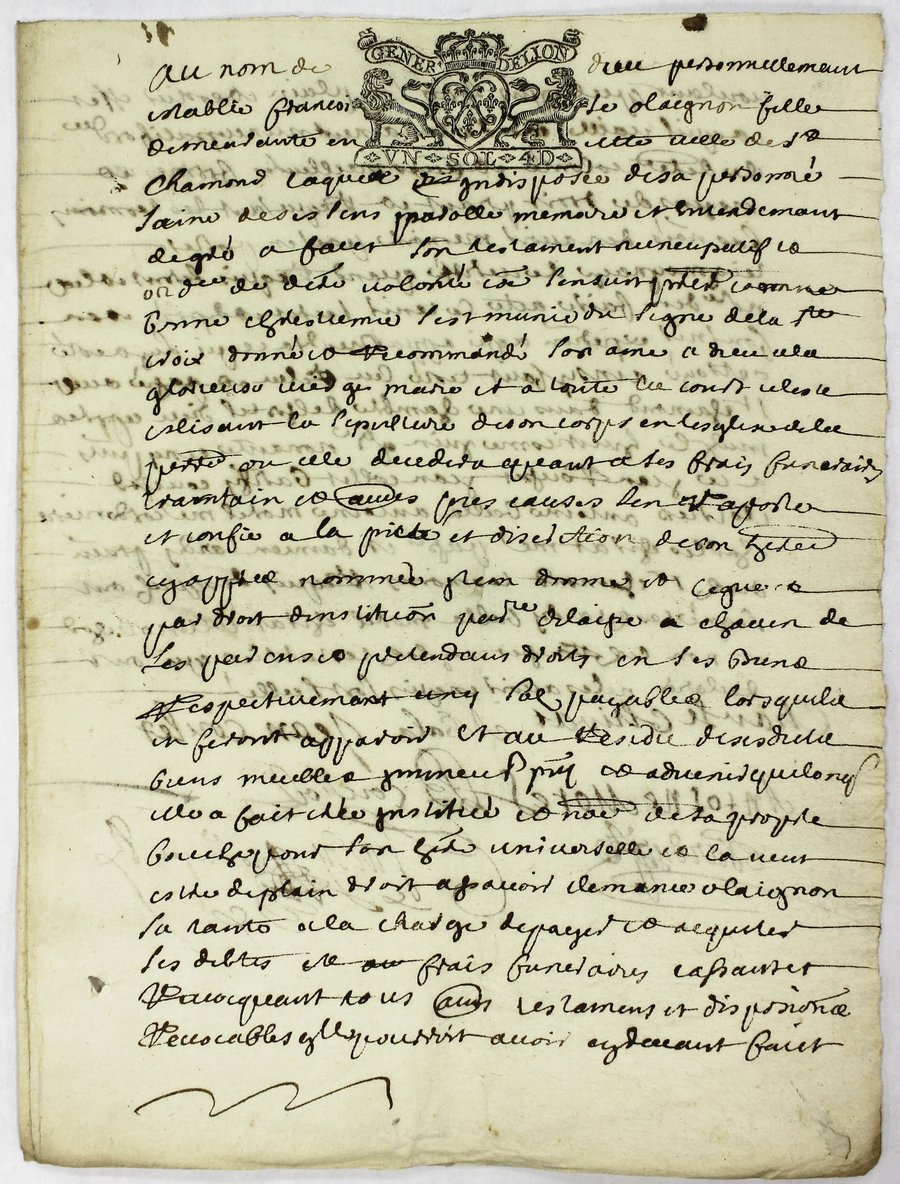 GENER · DELION
VN · SOL · 4D
Au nom de dieu personnellemant
establie françoise olaignon fille
demeurante en cette ville de st
Chamond laquelle indisposée de sa personne
saine de ses sens parolle memoire et entendemant
de gré a faict son testament nuncupatif et
ordre de volonté comme sensuit comme
bonne chrestienne sest munie du signe de la ste
croix donné et recommandé son ame a dieu a la
glorieuse vierge marie et a toute la court celeste
eslisant la sepulture de son corps en lesglise de la
ou elle decedera queant a ses frais funeraires
et autres pies causes sen raporte
et confie a la pieté et discretion de son
cy apprés nommée donne et legue
par droit dinstitution delaisse a chacun de
ses parens et pretendans droits en ses biens
respectivement sol payables lorsquils
en feront apparoir et au residu de
biens meubles et advenir
elle a fait institué et de sa propre
bouche pour son universelle et la veut
estre de plain droit a sçavoir olaignon
sa tante a la charge de payer et acquiter
ses debtes et frais funeraires cassant et
revocquant tous autres testamens et dispositions
revocables pourroit avoir cy devant faict